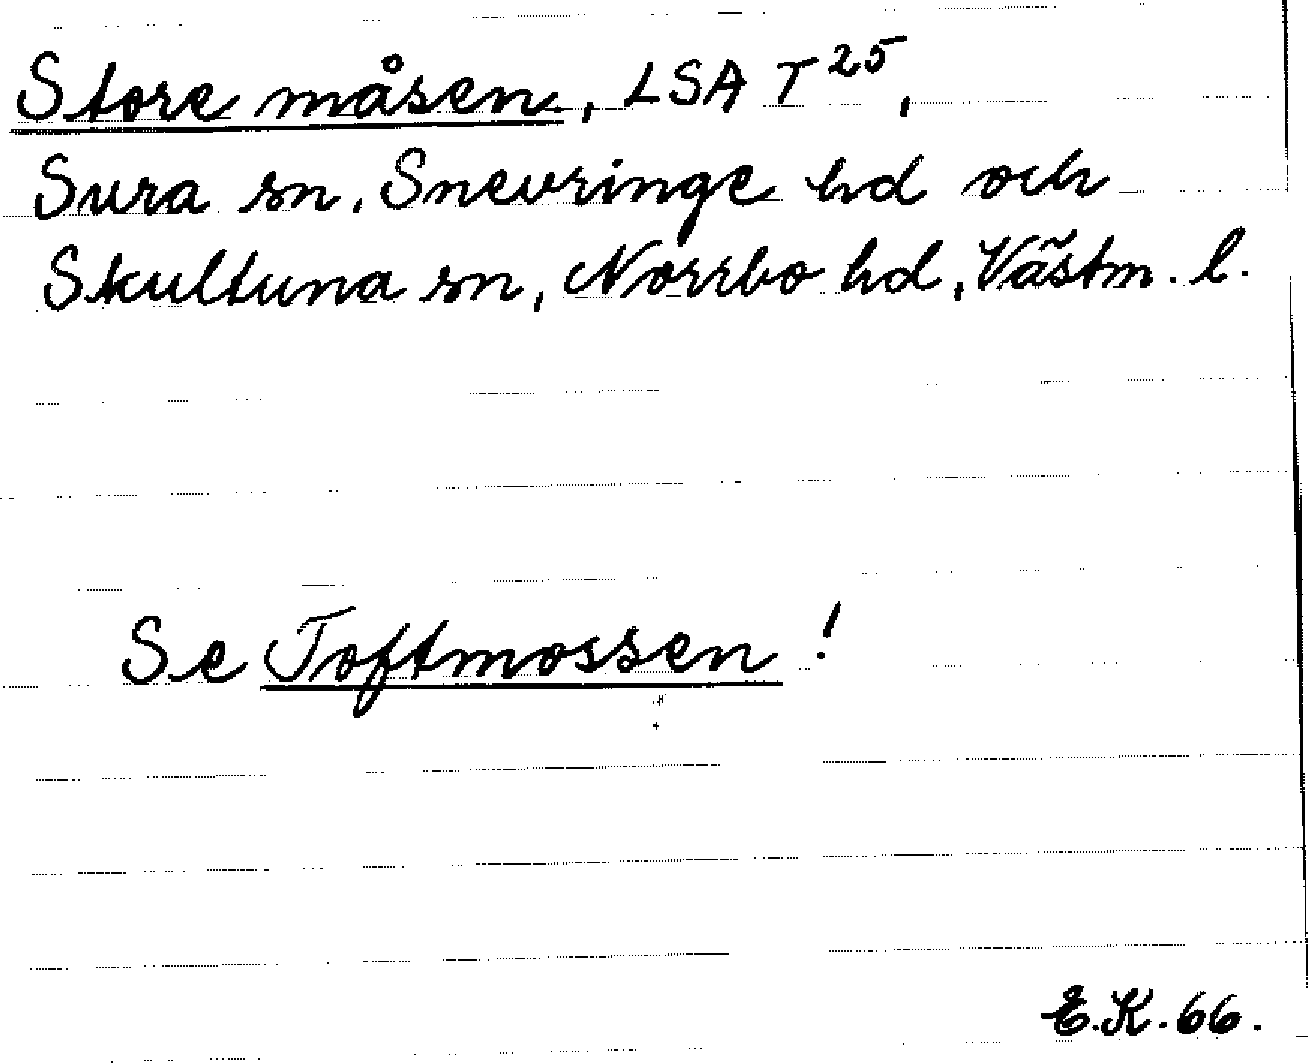 Store måsen, LSA T25,
Sura sn, Snevringe hd och
Skultuna sn, Norrbo hd, Västm. l.
Se Toftmossen!
E.K. 66.